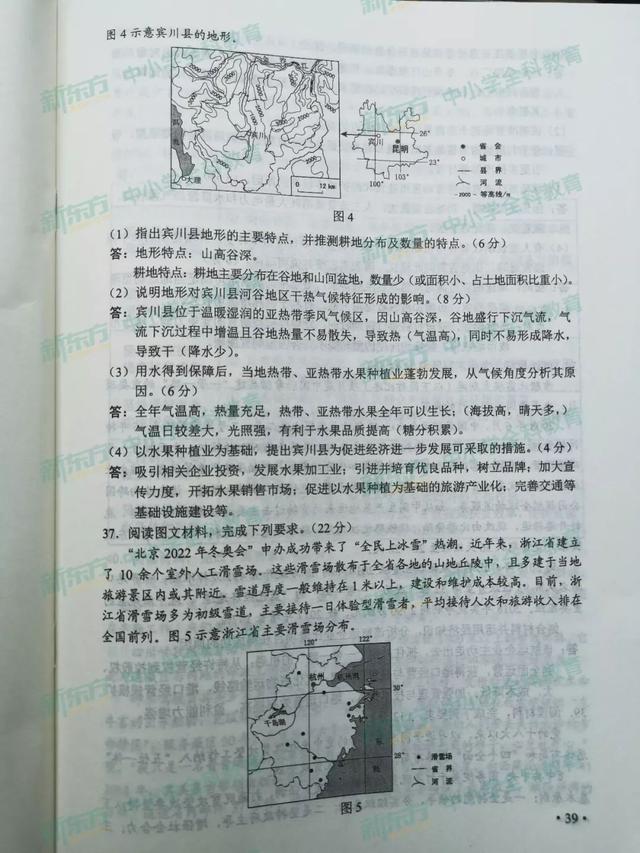 图4示意宾川县的地形.
2000
宾川
大理
0 12 km
宾川
昆明
26°
23°
100°
103°
省会
城市
县界
河流
-2000- 等高线/m
图4
(1) 指出宾川县地形的主要特点，并推测耕地分布及数量的特点。(6分)
答：地形特点：山高谷深。
耕地特点：耕地主要分布在谷地和山间盆地，数量少（或面积小、占土地面积比重小）。
(2) 说明地形对宾川县河谷地区干热气候特征形成的影响。(8分)
答：宾川县位于温暖湿润的亚热带季风气候区，因山高谷深，谷地盛行下沉气流，气
流下沉过程中增温且谷地热量不易散失，导致热（气温高），同时不易形成降水，
导致干（降水少）。
(3) 用水得到保障后，当地热带、亚热带水果种植业蓬勃发展，从气候角度分析其原
因。(6分)
答：全年气温高，热量充足，热带、亚热带水果全年可以生长；（海拔高，晴天多，）
气温日较差大，光照强，有利于水果品质提高（糖分积累）。
(4) 以水果种植业为基础，提出宾川县为促进经济进一步发展可采取的措施。(4分)
答：吸引相关企业投资，发展水果加工业；引进并培育优良品种，树立品牌；加大宣
传力度，开拓水果销售市场；促进以水果种植为基础的旅游产业化；完善交通等
基础设施建设等。
37. 阅读图文材料，完成下列要求。(22分)
“北京2022年冬奥会”申办成功带来了“全民上冰雪”热潮。近年来，浙江省建立
了10余个室外人工滑雪场。这些滑雪场散布于全省各地的山地丘陵中，且多建于当地
旅游景区内或其附近。雪道厚度一般维持在1米以上，建设和维护成本较高。目前，浙
江省滑雪场多为初级雪道，主要接待一日体验型滑雪者，平均接待人次和旅游收入排在
全国前列。图5示意浙江省主要滑雪场分布.
120°
122°
杭州
杭州湾
30°
千岛湖
东
海
28°
滑雪场
省界
河流
图5
·39·
新东方 中小学全科教育